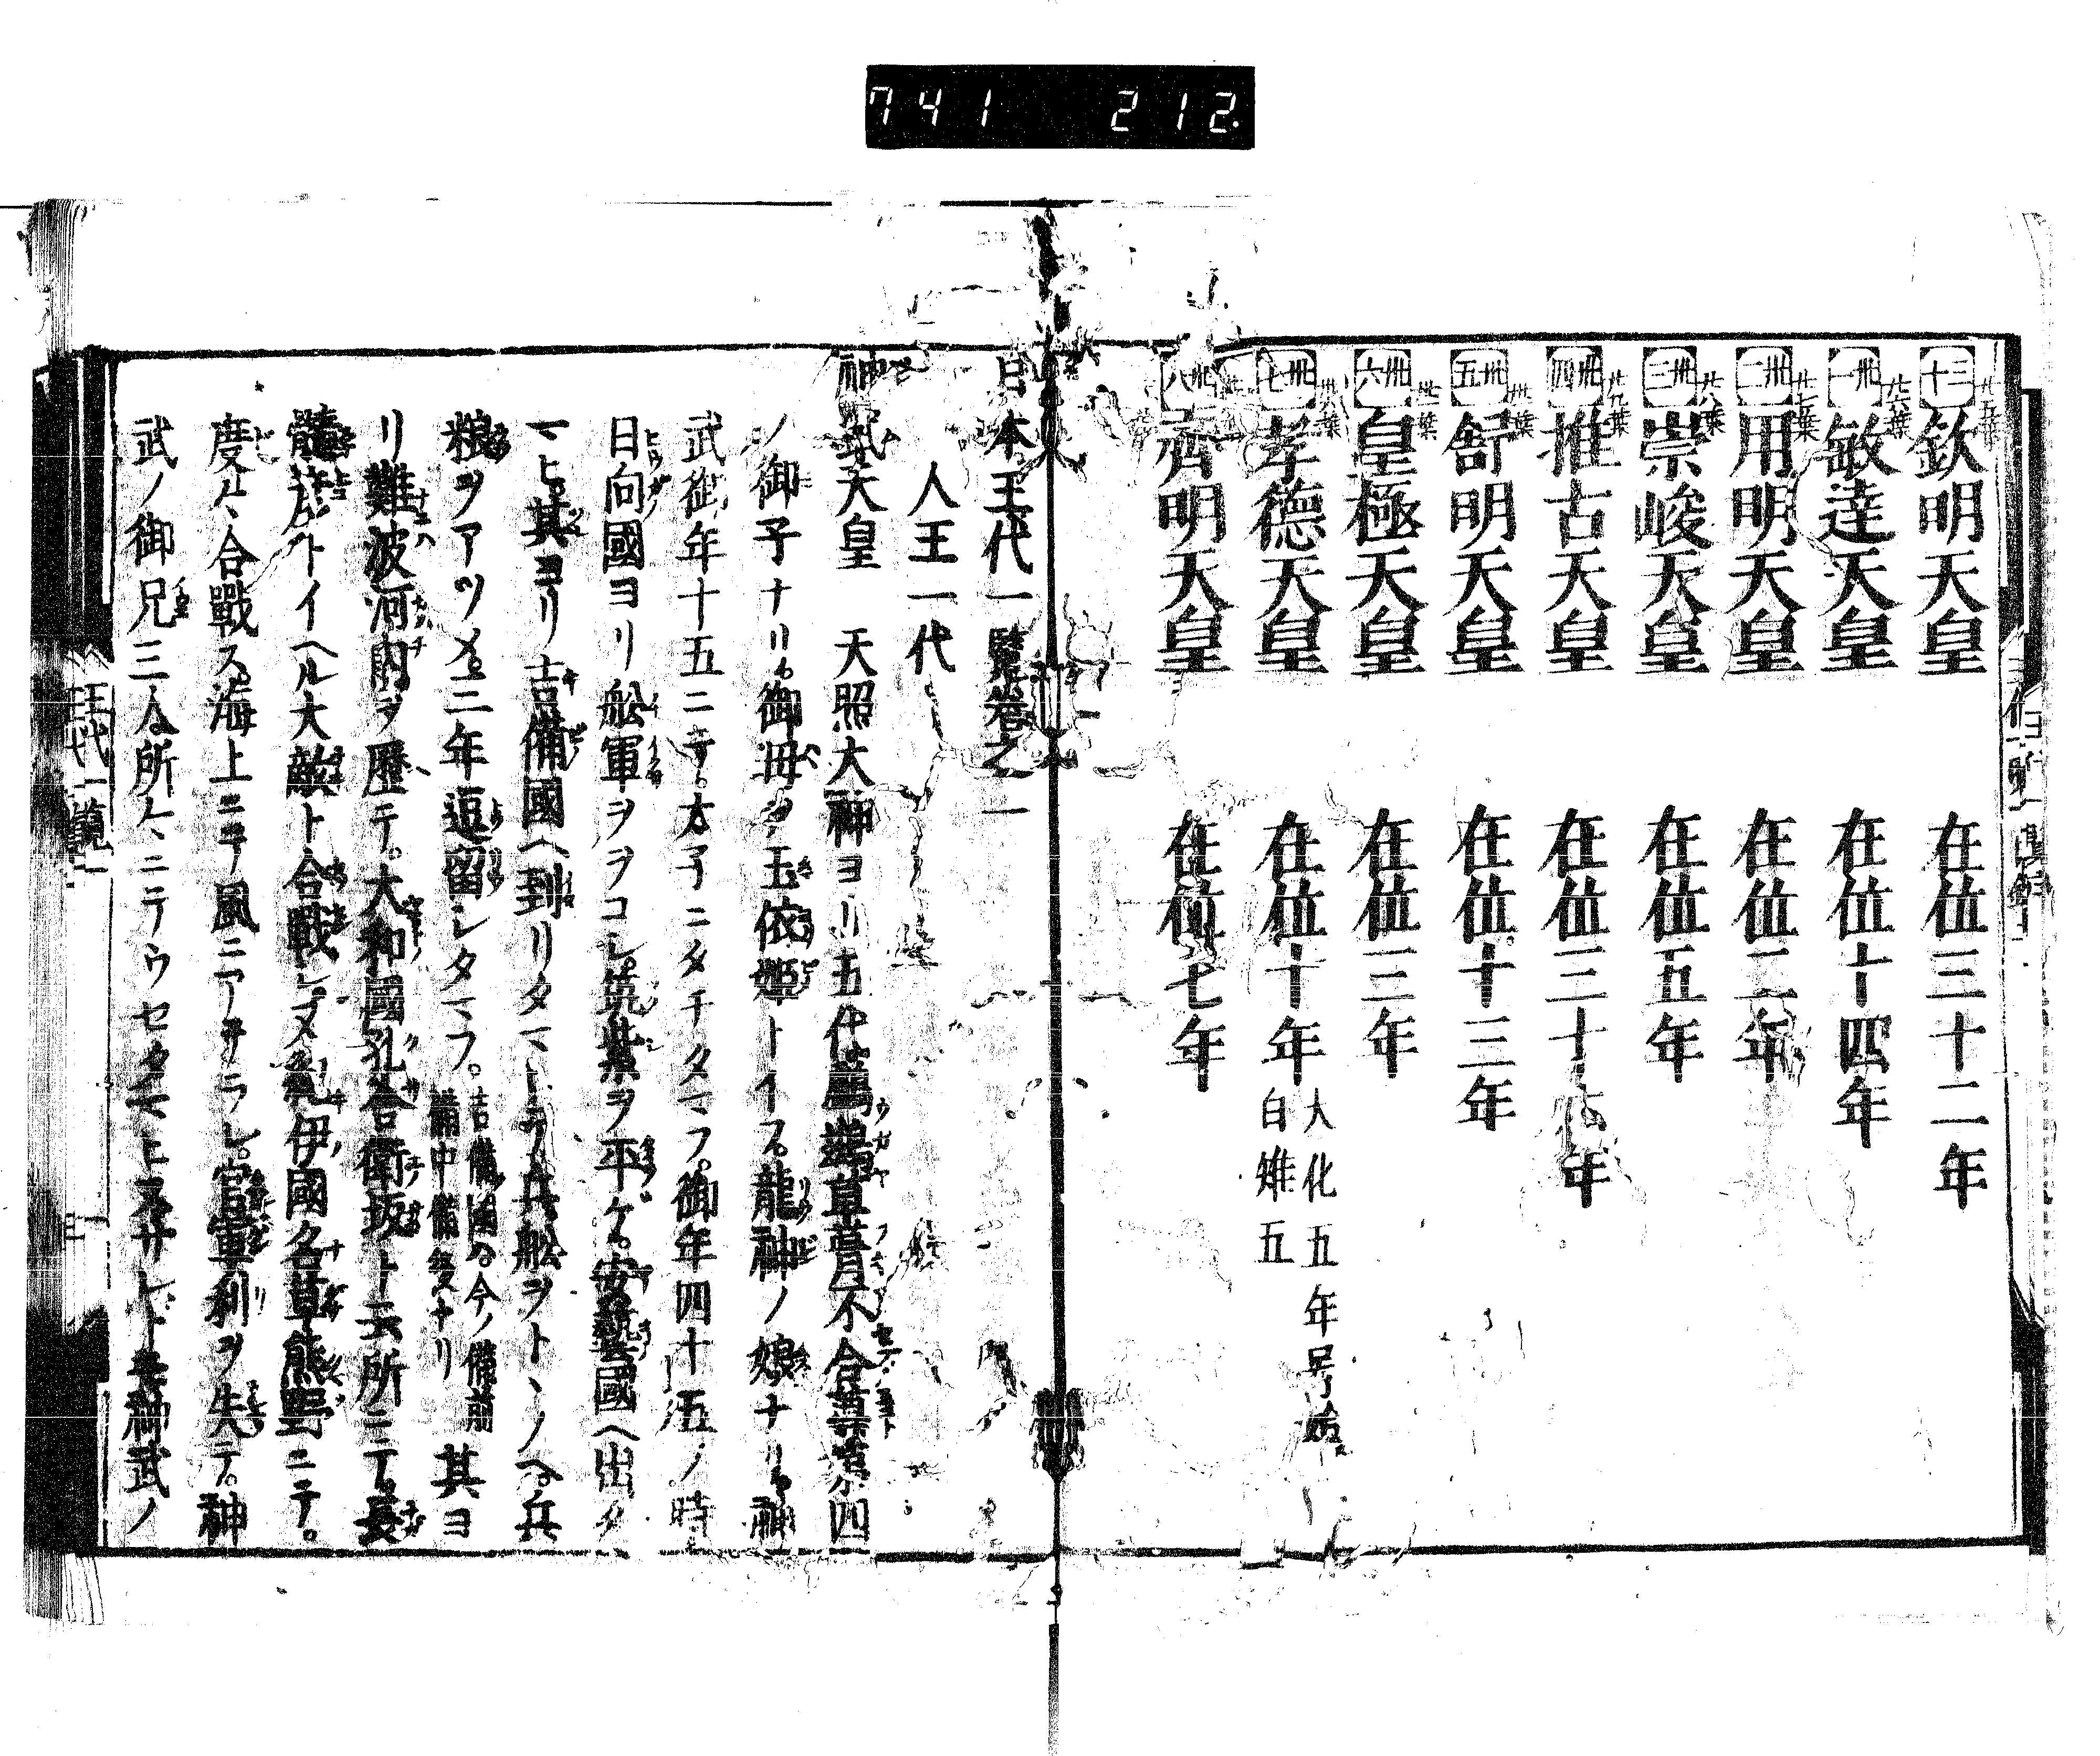 741 212.
三十 欽明天皇 在位三十二年
卅一 敏達天皇 在位十四年
卅二 用明天皇 在位二年
卅三 崇峻天皇 在位五年
卅四 推古天皇 在位三十 年
卅五 舒明天皇 在位十三年
卅六 皇極天皇 在位三年
卅七 孝德天皇 在位十年 大化五年号始 白雉五
卅八 齊明天皇 在位七年
日本王代一覧卷之一
人王一代
神武天皇 天照大神ヨリ五代鸕鷀草葺不合尊第四
ノ御子ナリ。御母ヲ玉依姬トイフ。龍神ノ娘ナリ。神
武御年十五ニテ。太子ニタチタマフ。御年四十五ノ時
日向國ヨリ舩軍ヲヲコシ。筑紫ヲ平ケ。安藝國ヘ出タ
マヒ。其ヨリ吉備國ヘ到リタマヒテ。兵舩ヲトヽノヘ。兵
粮ヲアツメ。三年逗留シタマフ。吉備國ハ今ノ備前備中備後ナリ 其ヨ
リ難波河内ヲ歷テ。大和國孔舎衛坂ト云所ニテ。長
髓彦トイヘル大敵ト合戰シ。又紀伊國名草熊野ニテ。
度々合戰ス。海上ニテ風ニアヒ 官軍利ヲ失テ。神
武ノ御兄三人。所々ニテウセタマヒヌサレドモ神武ノ
王代一覽一